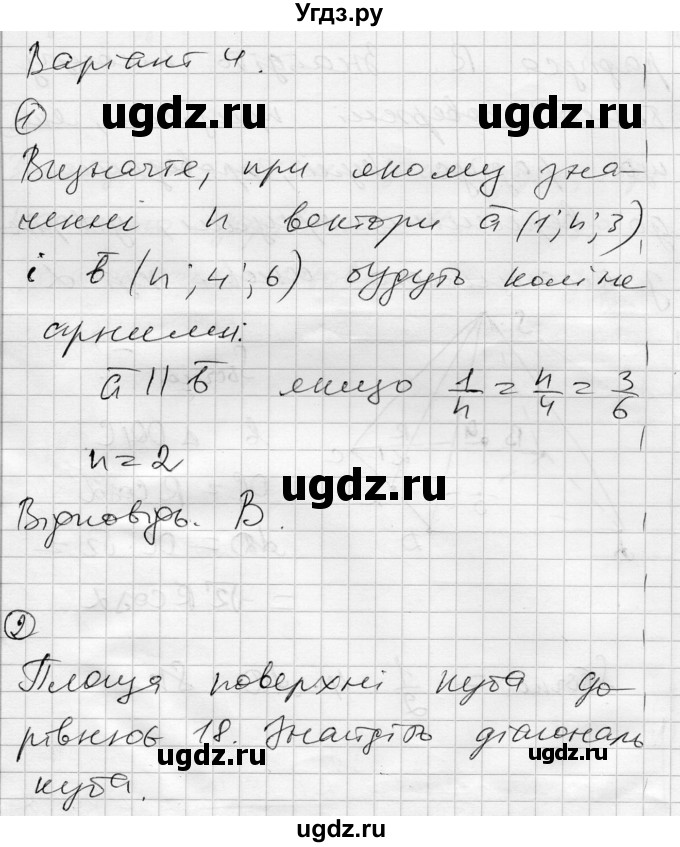 Угдз.ру
Варіант 4.
ugdz.ru ugdz.ru
①
Визначте, при якому зна-
ченні n вектори a̅ (1; n; 3)
і b̅ (n; 4; 6) будуть коліне
арними:
a̅ || b̅ якщо 1/n = n/4 = 3/6
n = 2
ugdz.ru
Відповідь. В.
②
Площа поверхні куба до-
рівнює 18. Знайдіть діагональ
ugdz.ru ugdz.ru
куба.
ugdz.ru